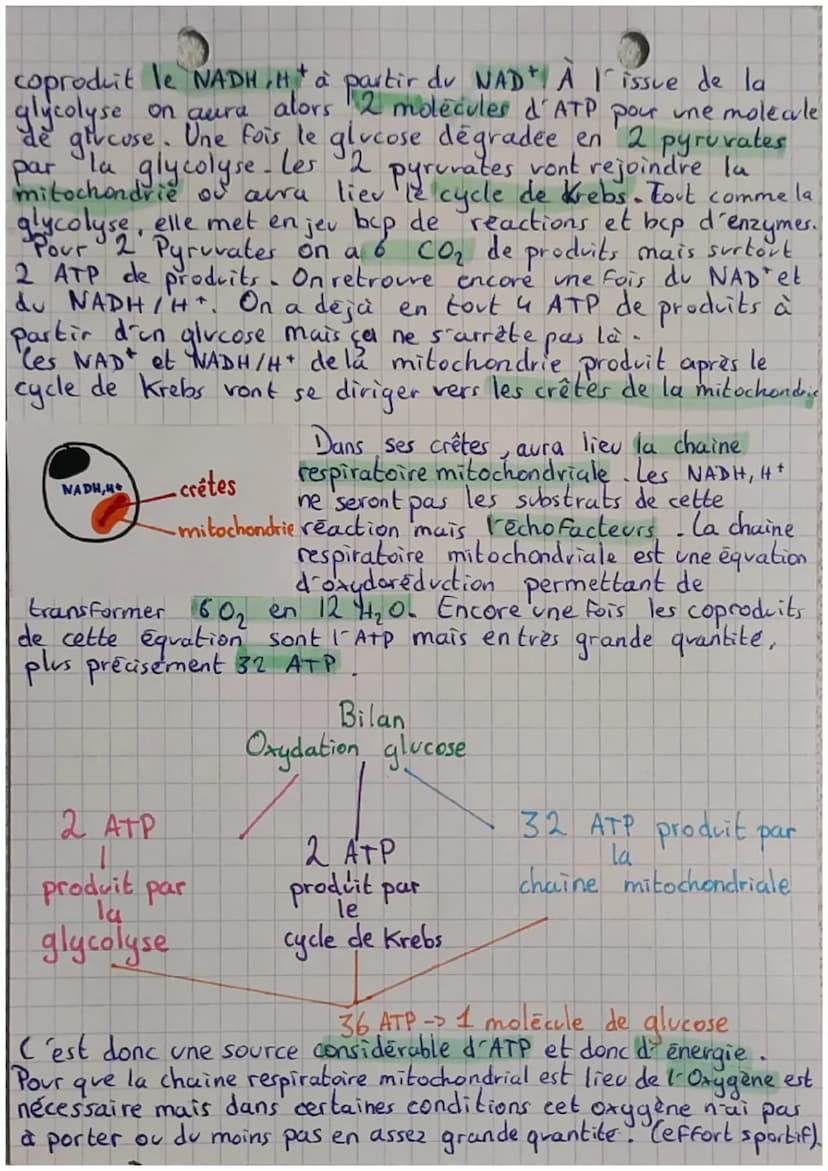 coproduit le NADH,H+ à partir du NAD+. À l'issue de la
glycolyse on aura alors 2 molécules d'ATP pour une molécule
de glucose. Une fois le glucose dégradée en 2 pyruvates
par la glycolyse. Les 2 pyruvates vont rejoindre la
mitochondrie où aura lieu le cycle de Krebs. Tout comme la
glycolyse, elle met en jeu bcp de réactions et bcp d'enzymes.
Pour 2 Pyruvates on a 6 CO2 de produits mais surtout
2 ATP de produits. On retrouve encore une fois du NAD+ et
du NADH/H+. On a déjà en tout 4 ATP de produits à
partir d'un glucose mais ça ne s'arrête pas là.
Ces NAD+ et NADH/H+ de la mitochondrie produit après le
cycle de Krebs vont se diriger vers les crêtes de la mitochondrie
NADH,H+
crêtes
mitochondrie
Dans ses crêtes, aura lieu la chaine
respiratoire mitochondriale. Les NADH, H+
ne seront pas les substrats de cette
réaction mais l'échofacteurs. La chaine
respiratoire mitochondriale est une équation
d'oxydoréduction permettant de
transformer 6O2 en 12 H2O. Encore une fois les coproduits
de cette équation sont l'ATP mais en très grande quantité,
plus précisément 32 ATP.
Bilan
Oxydation glucose
2 ATP
produit par
la
glycolyse
2 ATP
produit par
le
cycle de Krebs
32 ATP produit par
la
chaine mitochondriale
36 ATP -> 1 molécule de glucose
C'est donc une source considérable d'ATP et donc d'énergie.
Pour que la chaine respiratoire mitochondrial est lieu de l'Oxygène est
nécessaire mais dans certaines conditions cet oxygène n'ai pas
à porter ou du moins pas en assez grande quantité. (effort sportif).